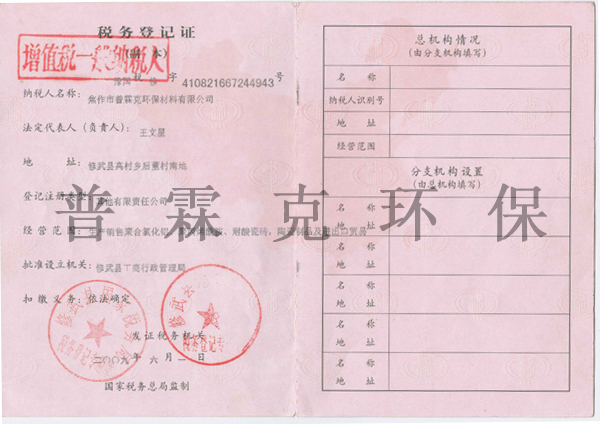 税务登记证
(副本)
增值税一般纳税人
税 字 410821667244943 号
纳税人名称: 焦作市普霖克环保材料有限公司
法定代表人(负责人): 王文星
地 址: 修武县高村乡后董村南地
登记注册类型: 其他有限责任公司
普霖克环保
经营范围: 生产销售聚合氯化铝、耐酸瓷砖,
批准设立机关: 修武县工商行政管理局
扣缴义务: 依法确定
发证税务机关
二〇〇九年 六月 一日
国家税务总局监制
修武县国家税务局
税务登记专
修武
税务登记专
总机构情况
(由分支机构填写)
名 称
纳税人识别号
地 址
经营范围
分支机构设置
(由总机构填写)
名 称
地 址
名 称
地 址
名 称
地 址
名 称
地 址
名 称
地 址